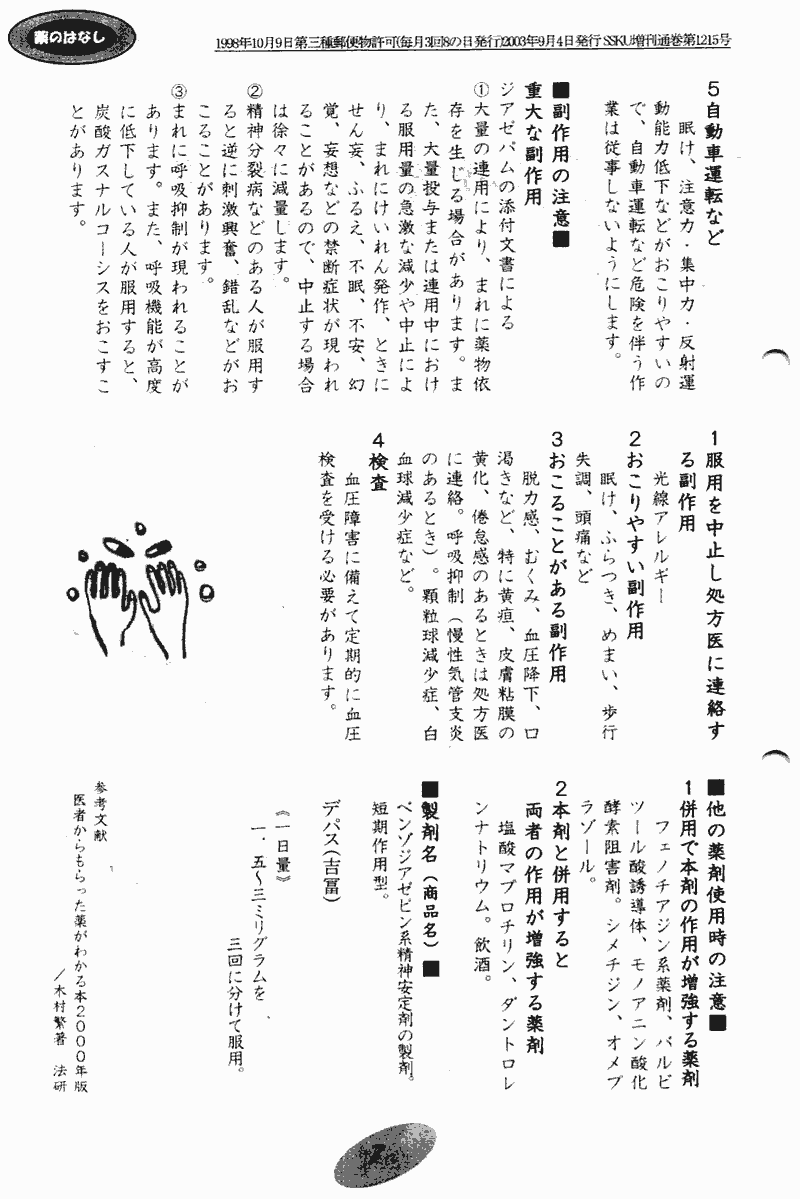 薬のはなし
1998年10月9日第三種郵便物許可(毎月3回8の日発行)2003年9月4日発行 SSKU増刊通巻第1215号
5自動車運転など
眠け、注意力・集中力・反射運
動能力低下などがおこりやすいの
で、自動車運転など危険を伴う作
業は従事しないようにします。
■副作用の注意■
重大な副作用
ジアゼパムの添付文書による
①大量の連用により、まれに薬物依
存を生じる場合があります。ま
た、大量投与または連用中におけ
る服用量の急激な減少や中止によ
り、まれにけいれん発作、ときに
せん妄、ふるえ、不眠、不安、幻
覚、妄想などの禁断症状が現われ
ることがあるので、中止する場合
は徐々に減量します。
②精神分裂病などのある人が服用す
ると逆に刺激興奮、錯乱などがお
こることがあります。
③まれに呼吸抑制が現われることが
あります。また、呼吸機能が高度
に低下している人が服用すると、
炭酸ガスナルコーシスをおこすこ
とがあります。
1服用を中止し処方医に連絡す
る副作用
光線アレルギー
2おこりやすい副作用
眠け、ふらつき、めまい、歩行
失調、頭痛など
3おこることがある副作用
脱力感、むくみ、血圧降下、口
渇きなど、特に黄疸、皮膚粘膜の
黄化、倦怠感のあるときは処方医
に連絡。呼吸抑制(慢性気管支炎
のあるとき)。顆粒球減少症、白
血球減少症など。
4検査
血圧障害に備えて定期的に血圧
検査を受ける必要があります。
■他の薬剤使用時の注意■
1併用で本剤の作用が増強する薬剤
フェノチアジン系薬剤、バルビ
ツール酸誘導体、モノアニン酸化
酵素阻害剤。シメチジン、オメプ
ラゾール。
2本剤と併用すると
両者の作用が増強する薬剤
塩酸マプロチリン、ダントロレ
ンナトリウム。飲酒。
■製剤名(商品名)■
ベンゾジアゼピン系精神安定剤の製剤。
短期作用型。
デパス(吉冨)
《一日量》
一、五〜三ミリグラムを
三回に分けて服用。
参考文献
医者からもらった薬がわかる本2000年版
/木村繁著 法研
7